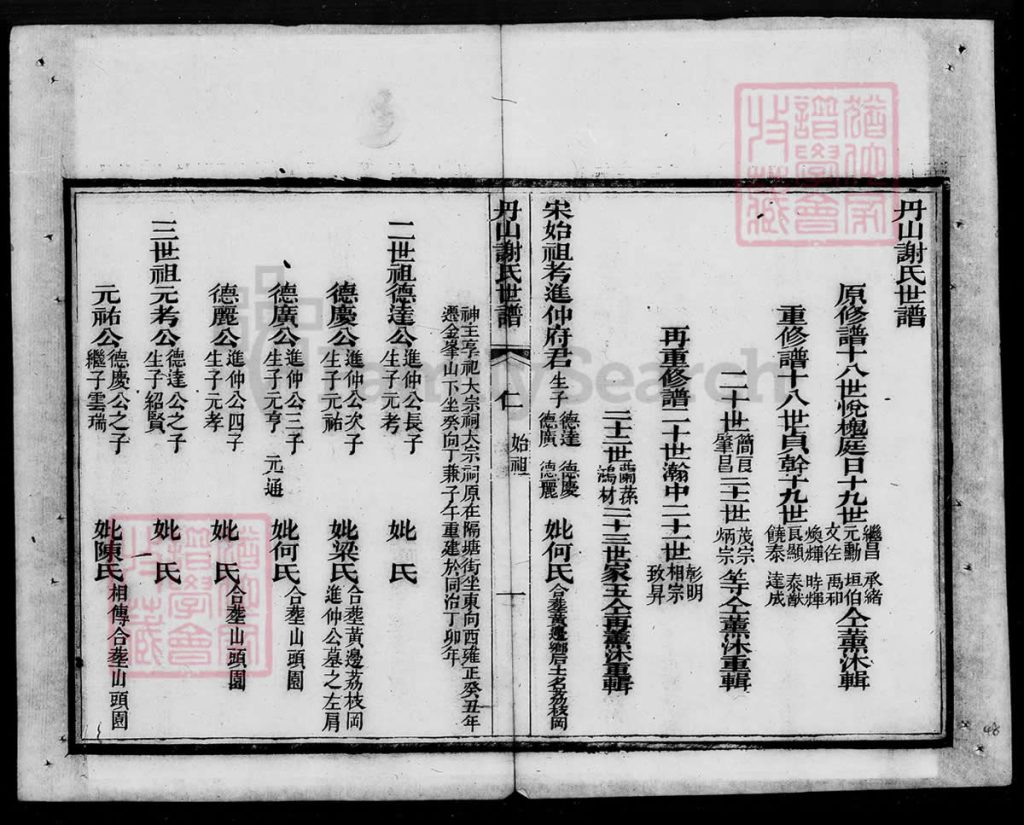 丹山謝氏世譜
原修譜十八世悅槐庭日十九世繼昌元勳文佐承緒垣伯禹邳仝薰沐輯
重修譜十八世貞幹十九世煥輝良顯饒泰時輝泰猷達成
二十世簡良肇昌二十一世茂宗炳宗等仝薰沐重輯
再重修譜二十世瀚中二十一世彰明相宗致昇
二十二世蘭蓀鴻材二十三世家玉仝再薰沐重輯
宋始祖考進仲府君生子德達德廣德慶德麗妣何氏合塟黃邊鄉后土名荔枝岡
丹山謝氏世譜 仁 始祖 一
神主享祀大宗祠大宗祠原在隔塘街坐東向西雍正癸丑年
遷金峯山下坐癸向丁兼子午重建於同治丁卯年
二世祖德達公進仲公長子生子元考妣 氏
德慶公進仲公次子生子元祐妣梁氏合塟黃邊荔枝岡進仲公墓之左肩
德廣公進仲公三子生子元亨 元通妣何氏合塟山頭園
德麗公進仲公四子生子元孝妣 氏合塟山頭園
三世祖元考公德達公之子生子紹賢妣 氏
元祐公德慶公之子繼子雲瑞妣陳氏相傳合塟山頭園
FamilySearch
48